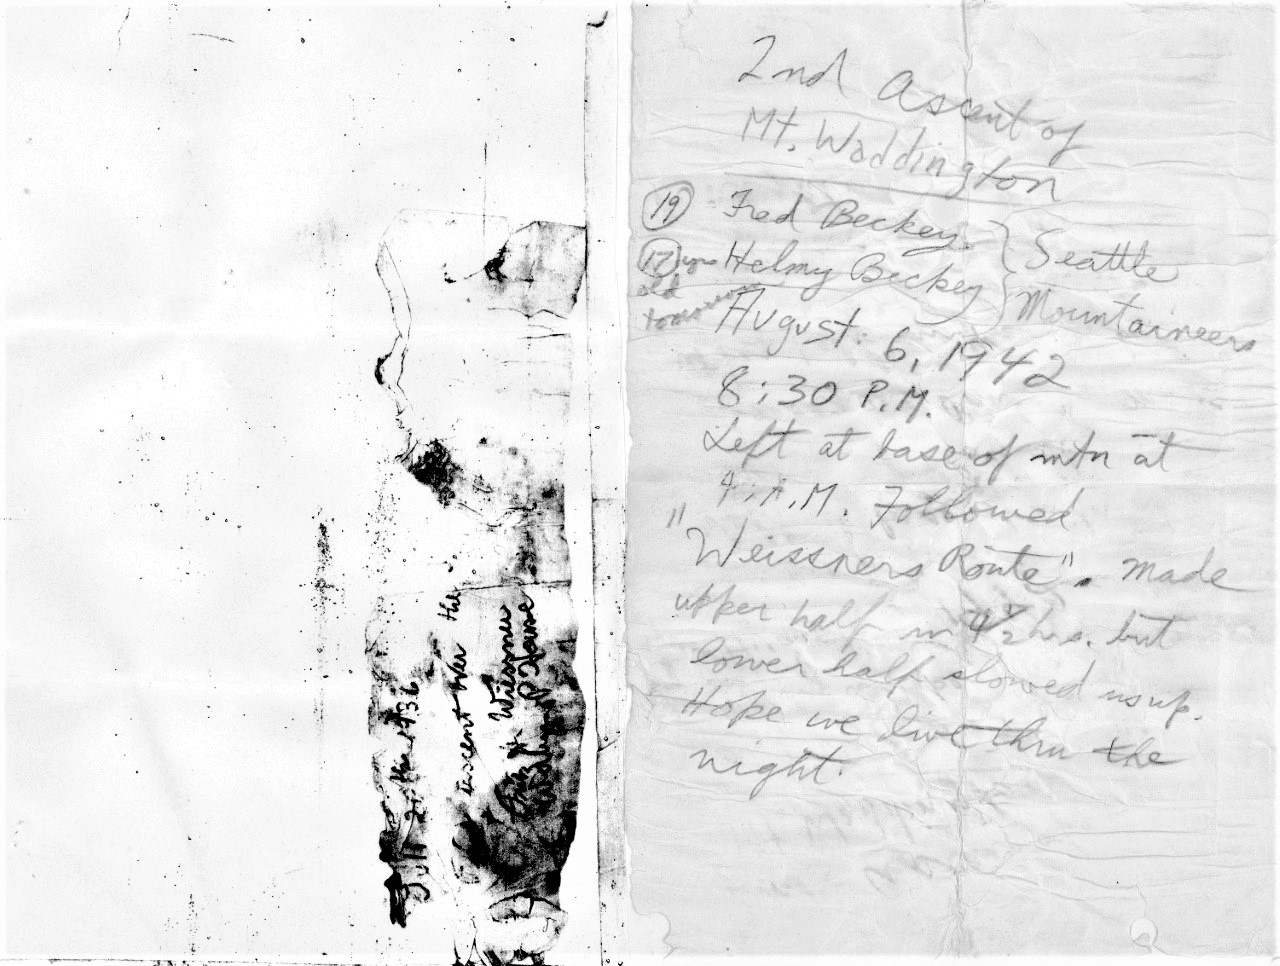 July 21 the 1936
ascent over the
Fritz H. Wiessner
William P House
2nd Ascent of
Mt. Waddington
19 Fred Beckey } Seattle
17 yrs Helmy Beckey } Mountaineers
old
tomorrow
August: 6, 1942
8:30 P.M.
Left at base of mtn at
A.M. Followed
"Weissners Route". Made
upper half in 4 1/2 hrs. but
lower half slowed us up.
Hope we live thru the
night.